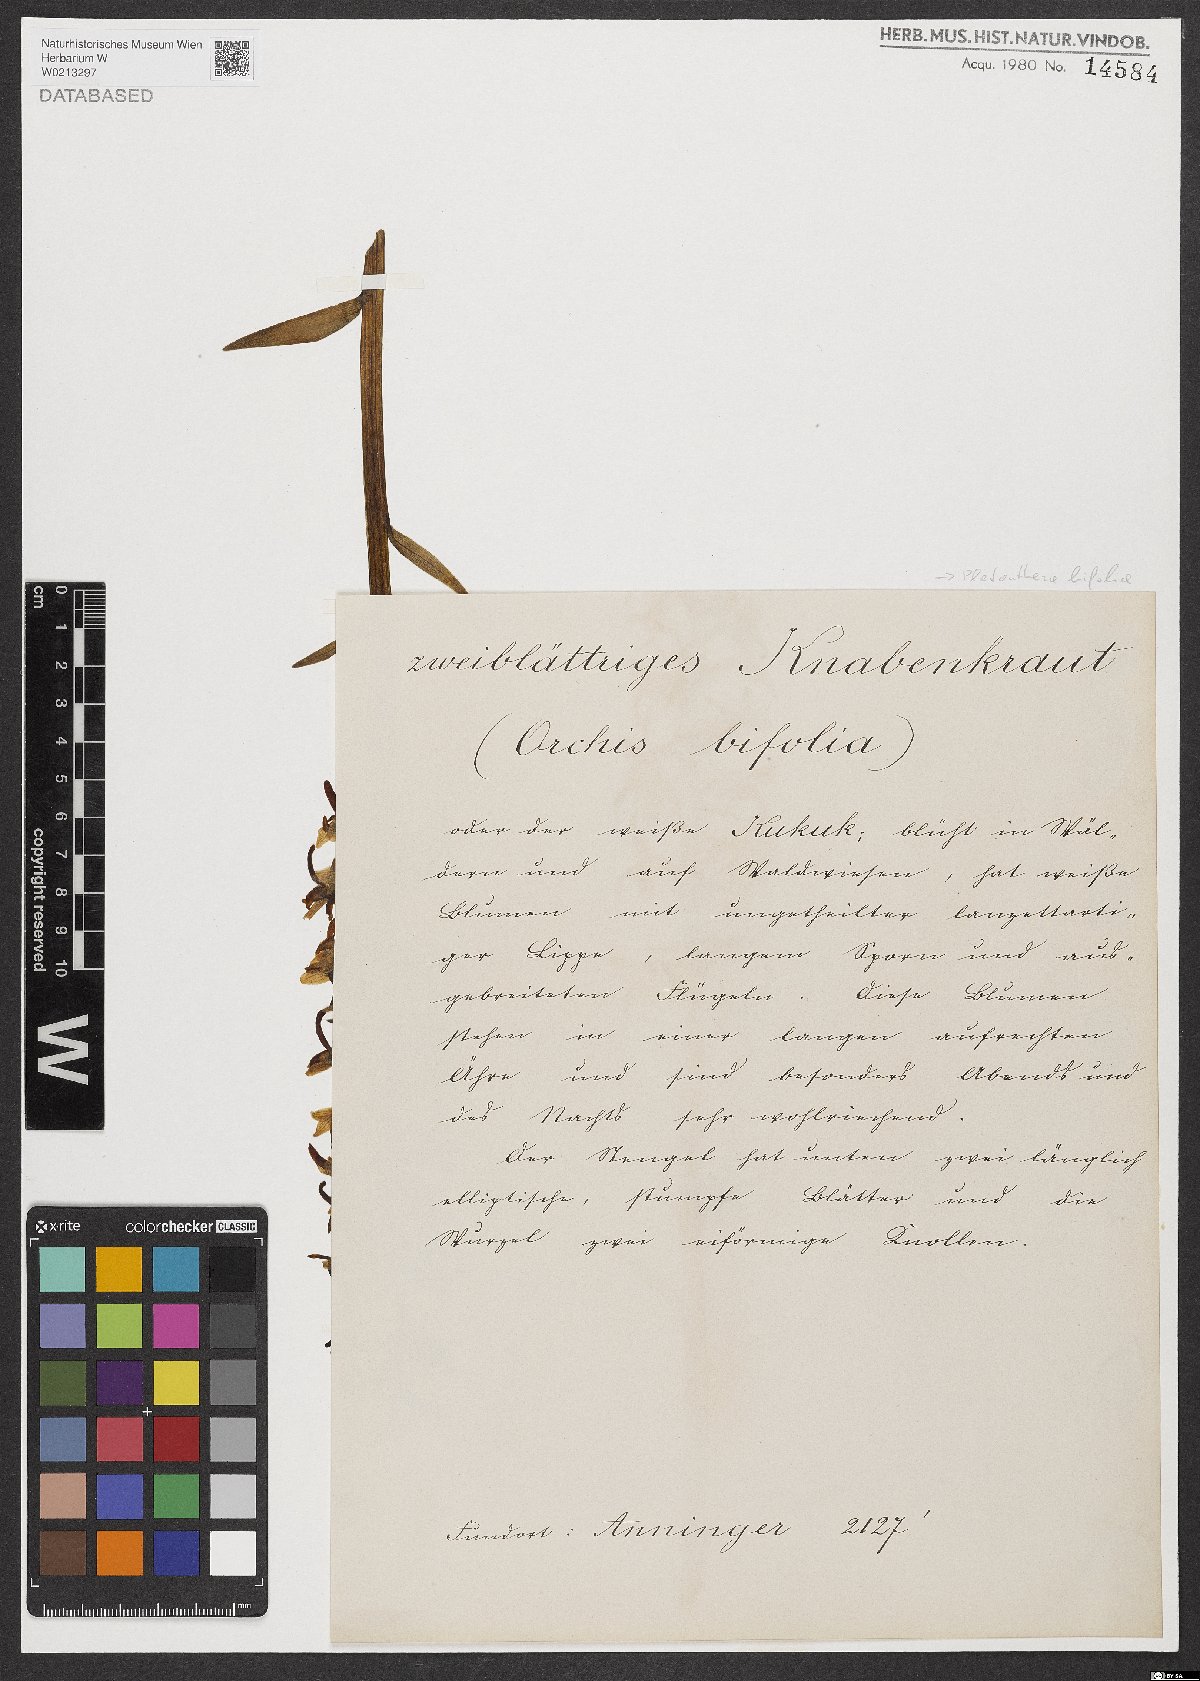 Naturhistorisches Museum Wien
Herbarium W
W0213297
DATABASED
HERB. MUS. HIST. NATUR. VINDOB.
Acqu. 1980 No. 14584
→ Platanthera bifolia
zweiblättriges Knabenkraut
(Orchis bifolia)
oder der weiße Kukuk; blüht in Wäl-
dern und auf Waldwiesen, hat weiße
Blumen mit ungetheilter lanzettarti-
ger Lippe, langem Sporn und aus-
gebreiteten Flügeln. Diese Blumen
stehen in einer langen aufrechten
Ähre und sind besonders Abends und
des Nachts sehr wohlriechend.
Der Stengel hat unten zwei länglich
elliptische, stumpfe Blätter und die
Wurzel zwei eiförmige Knollen.
Fundort: Anninger 2127'
cm
0
1
2
3
4
5
6
7
8
9
10
copyright reserved
W
x-rite colorchecker CLASSIC
mm
BY SA